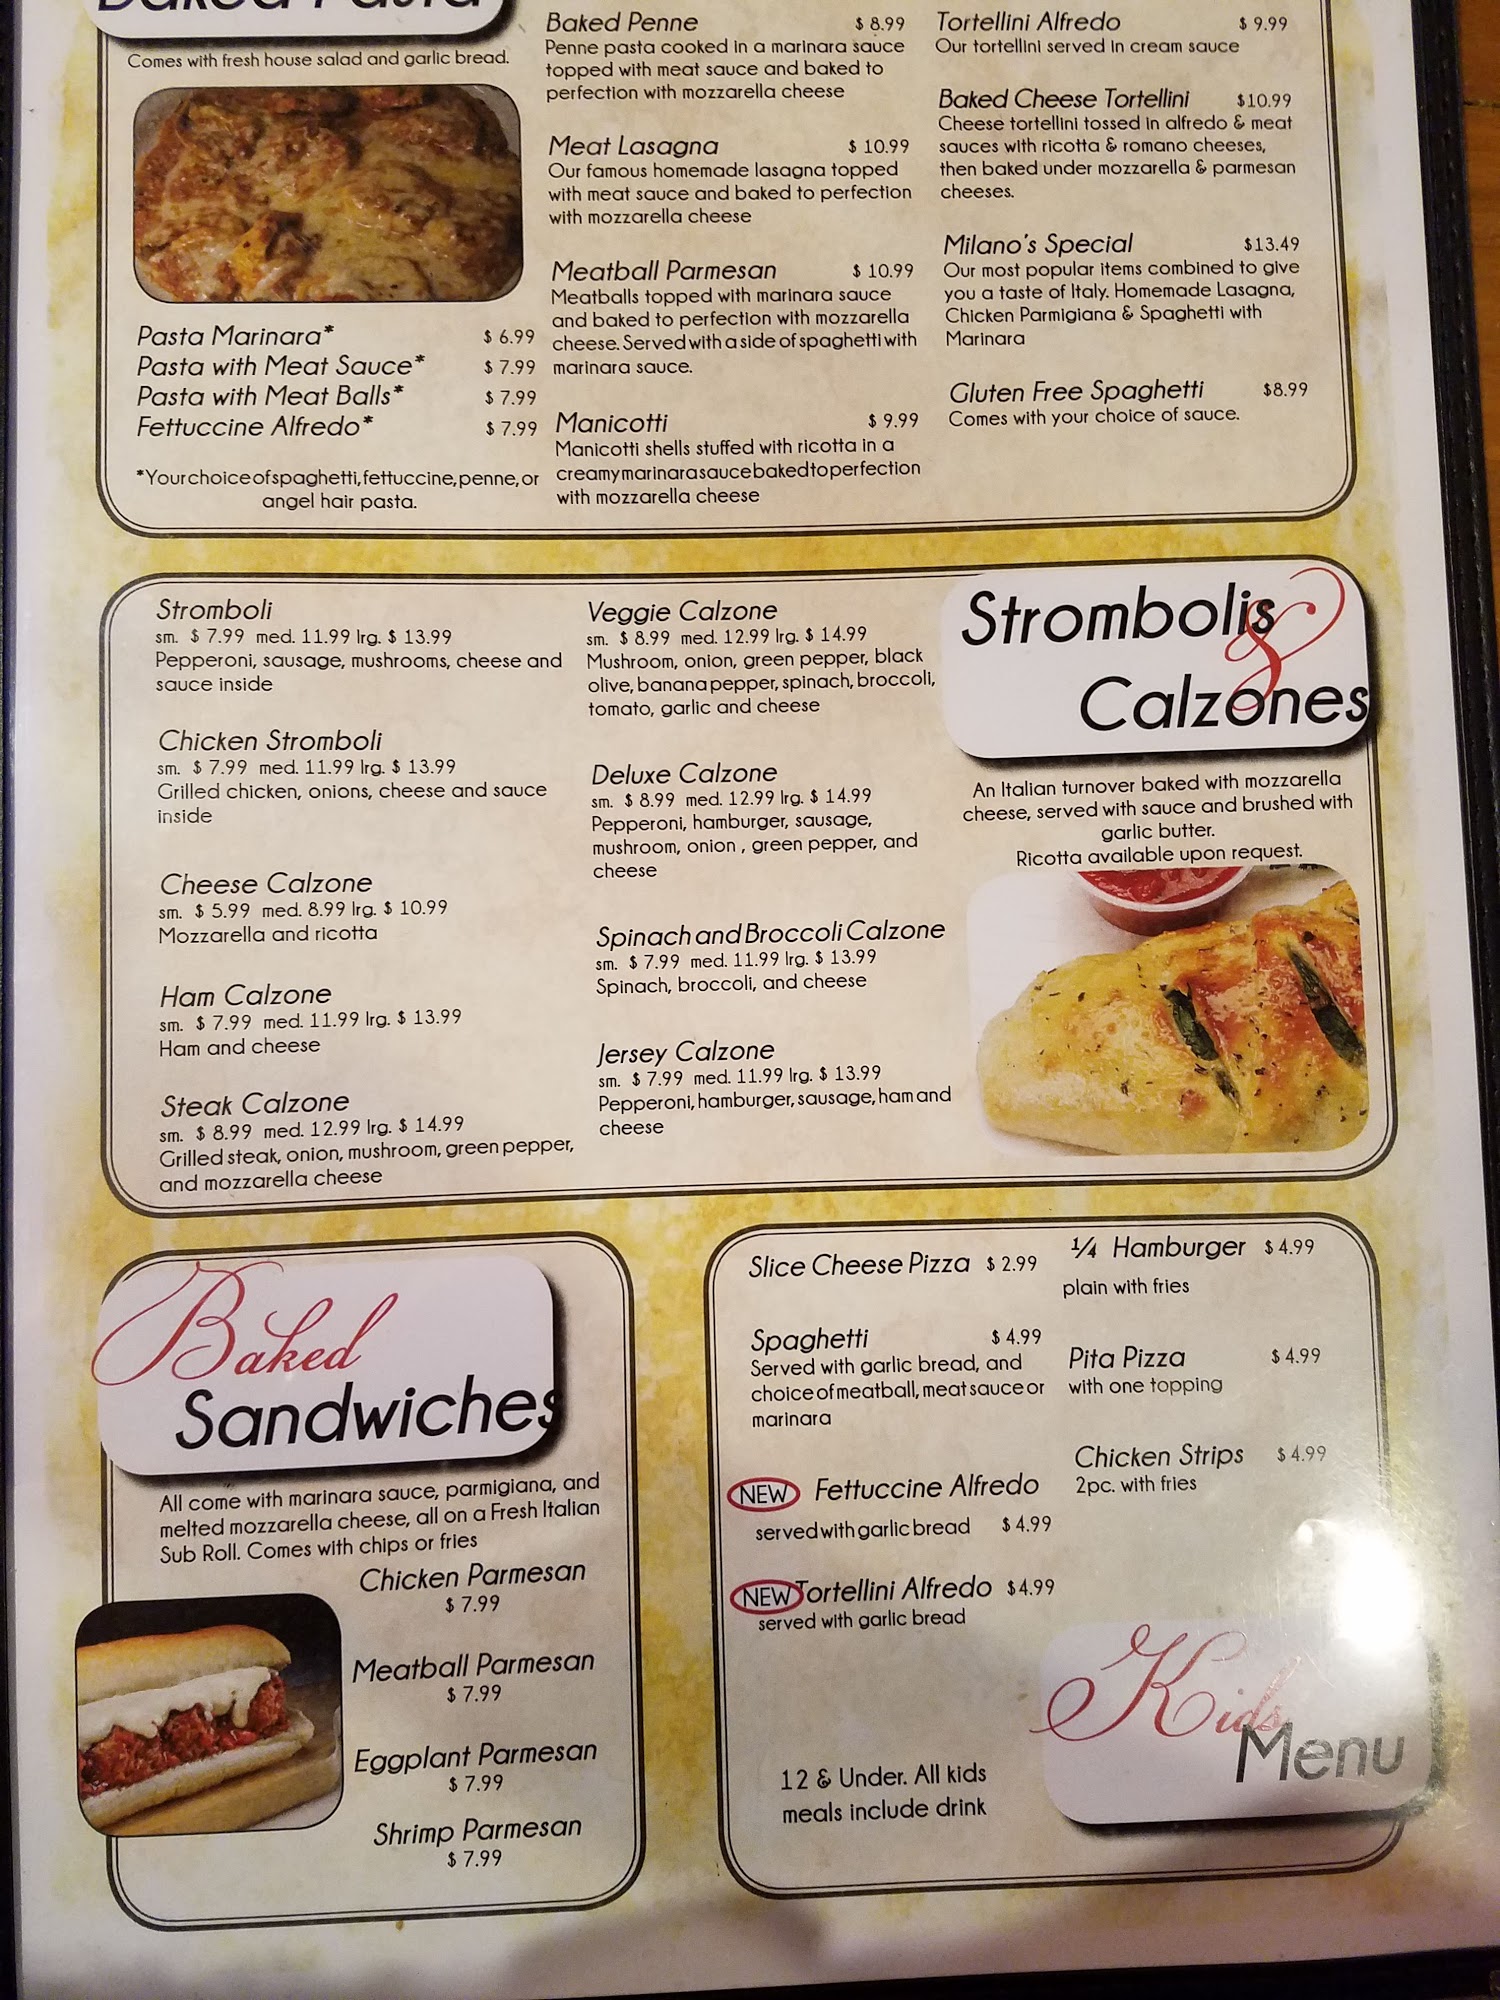 Baked Pasta
Comes with fresh house salad and garlic bread.
Pasta Marinara* $ 6.99
Pasta with Meat Sauce* $ 7.99
Pasta with Meat Balls* $ 7.99
Fettuccine Alfredo* $ 7.99
*Your choice of spaghetti, fettuccine, penne, or
angel hair pasta.
Baked Penne $ 8.99
Penne pasta cooked in a marinara sauce
topped with meat sauce and baked to
perfection with mozzarella cheese
Meat Lasagna $ 10.99
Our famous homemade lasagna topped
with meat sauce and baked to perfection
with mozzarella cheese
Meatball Parmesan $ 10.99
Meatballs topped with marinara sauce
and baked to perfection with mozzarella
cheese. Served with a side of spaghetti with
marinara sauce.
Manicotti $ 9.99
Manicotti shells stuffed with ricotta in a
creamy marinara sauce baked to perfection
with mozzarella cheese
Tortellini Alfredo $ 9.99
Our tortellini served in cream sauce
Baked Cheese Tortellini $10.99
Cheese tortellini tossed in alfredo & meat
sauces with ricotta & romano cheeses,
then baked under mozzarella & parmesan
cheeses.
Milano's Special $13.49
Our most popular items combined to give
you a taste of Italy. Homemade Lasagna,
Chicken Parmigiana & Spaghetti with
Marinara
Gluten Free Spaghetti $8.99
Comes with your choice of sauce.
Strombolis
&
Calzones
An Italian turnover baked with mozzarella
cheese, served with sauce and brushed with
garlic butter.
Ricotta available upon request.
Stromboli
sm. $ 7.99 med. 11.99 lrg. $ 13.99
Pepperoni, sausage, mushrooms, cheese and
sauce inside
Chicken Stromboli
sm. $ 7.99 med. 11.99 lrg. $ 13.99
Grilled chicken, onions, cheese and sauce
inside
Cheese Calzone
sm. $ 5.99 med. 8.99 lrg. $ 10.99
Mozzarella and ricotta
Ham Calzone
sm. $ 7.99 med. 11.99 lrg. $ 13.99
Ham and cheese
Steak Calzone
sm. $ 8.99 med. 12.99 lrg. $ 14.99
Grilled steak, onion, mushroom, green pepper,
and mozzarella cheese
Veggie Calzone
sm. $ 8.99 med. 12.99 lrg. $ 14.99
Mushroom, onion, green pepper, black
olive, banana pepper, spinach, broccoli,
tomato, garlic and cheese
Deluxe Calzone
sm. $ 8.99 med. 12.99 lrg. $ 14.99
Pepperoni, hamburger, sausage,
mushroom, onion , green pepper, and
cheese
Spinach and Broccoli Calzone
sm. $ 7.99 med. 11.99 lrg. $ 13.99
Spinach, broccoli, and cheese
Jersey Calzone
sm. $ 7.99 med. 11.99 lrg. $ 13.99
Pepperoni, hamburger, sausage, ham and
cheese
Baked
Sandwiches
All come with marinara sauce, parmigiana, and
melted mozzarella cheese, all on a Fresh Italian
Sub Roll. Comes with chips or fries
Chicken Parmesan
$ 7.99
Meatball Parmesan
$ 7.99
Eggplant Parmesan
$ 7.99
Shrimp Parmesan
$ 7.99
Slice Cheese Pizza $ 2.99
Spaghetti $ 4.99
Served with garlic bread, and
choice of meatball, meat sauce or
marinara
NEW Fettuccine Alfredo
served with garlic bread $ 4.99
NEW Tortellini Alfredo $4.99
served with garlic bread
1/4 Hamburger $ 4.99
plain with fries
Pita Pizza $ 4.99
with one topping
Chicken Strips $ 4.99
2pc. with fries
Kids
Menu
12 & Under. All kids
meals include drink